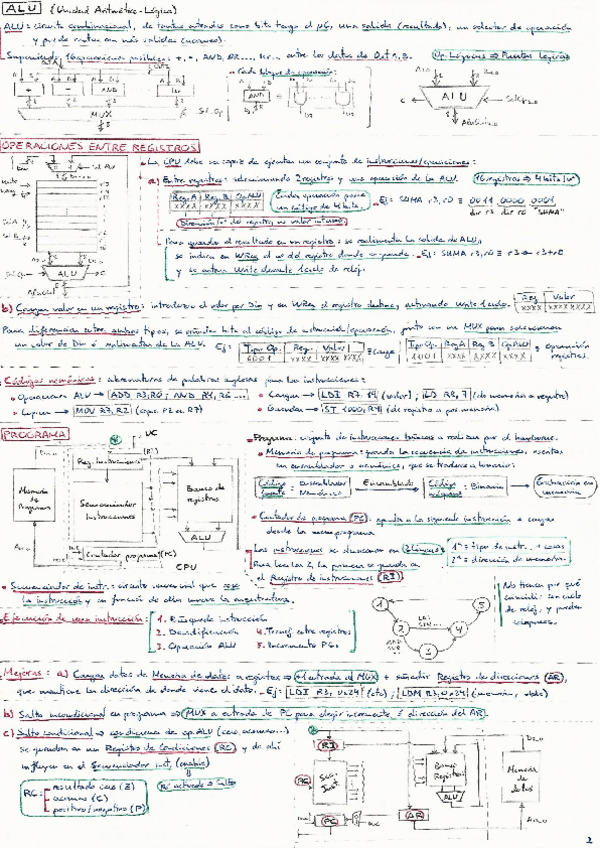 ALU (Unidad Aritmético-Lógica)
ALU: circuito combinacional, de tantas entradas como bits tenga el µC, una salida (resultado), un selector de operación
y puede contar con más salidas (acarreo).
Suponiendo 16 operaciones posibles: +, -, AND, OR, ... entre los datos de
Op. Lógicas → Puertas lógicas
Cada bloque de operación:
+ - AND
MUX
Sel. Op
AND
ALU
OPERACIONES ENTRE REGISTROS
La CPU debe ser capaz de ejecutar un conjunto de instrucciones/operaciones:
a) Entre registros: seleccionando 2 registros y una operación de la ALU.
16 registros → 4 bits
Reg. A Reg. B Op. ALU
XXXX XXXX XXXX
Cada operación posee un código de 4 bits.
Ej: SUMA r3, r0 ≡ 0011 0000 0001
dir r3 dir r0 "SUMA"
Dirección del registro, no valor interno
Para guardar el resultado en un registro: se realimenta la salida de ALU,
se indica en WReg el nº del registro donde se guarda. Ej: SUMA r3, r0 ≡ r3 ← r3+r0
y se activa Write durante 1 ciclo de reloj.
ALU
b) Cargar valor en un registro: introducir el valor por Din y en WReg el registro destino, activando Write 1 ciclo.
Reg Valor
XXXX XXXX
Para diferenciar entre ambos tipos, se añade 1 bit al código de instrucción/operación, junto con un MUX para seleccionar
un valor de Din ó realimentar de la ALU. Ej:
Tipo Op. Reg. Valor
Carga
Tipo Op. Reg A Reg B Op ALU
operación registros.
Códigos nemónicos: abreviaturas de palabras inglesas para las instrucciones:
Operaciones ALU → ADD R3, R0; AND R4, R6 ...
Cargar → LDI R7, 14 (valor); LD R8, 7 (de memoria a registro)
Copiar → MOV R7, R2 (copia R2 en R7)
Guardar → ST 1000, R4 (de registro a pos. memoria)
PROGRAMA
UC
Reg. Instrucciones (RI)
Memoria de Programa
Secuenciador Instrucciones
Banco de registros
ALU
Contador programa (PC)
CPU
Programa: conjunto de instrucciones básicas a realizar por el hardware.
Memoria de programa: guarda la secuencia de instrucciones, escritas
en ensamblador o nemónico, que se traduce a binario:
Código fuente: Ensamblador Nemónico
Ensamblado
Código máquina: Binario
Grabación en memoria
Contador de programa (PC): apunta a la siguiente instrucción a cargar
desde la mem. programa
Las instrucciones se almacenan en 2 líneas:
1ª = tipo de instr. + cosas
2ª = dirección de memoria.
Para leer las 2, la primera se guarda en
el Registro de instrucciones (RI)
Secuenciador de instr.: circuito secuencial que
la instrucción y en función de ella mueve la arquitectura.
1 2 3 4 5
No tienen por qué coincidir con ciclo de reloj, y pueden solaparse.
Ejecución de una instrucción:
1. Búsqueda instrucción
2. Decodificación
3. Operación ALU
4. Transf. entre registros
5. Incremento PC.
Mejoras: a) Cargar datos de Memoria de datos a registros → +1 entrada al MUX + añadir Registro de direcciones (AR),
que mantiene la dirección de donde viene el dato. Ej: LDI R3, 0x24 (cte); LDM R3, 0x24 (memoria, dato)
b) Salto incondicional en programa → MUX a entrada de PC para elegir incremento ó dirección del AR.
c) Salto condicional → condiciones de op. ALU (cero, acarreo...)
se guardan en un Registro de Condiciones (RC) y de ahí
influyen en el Secuenciador inst. (cambio)
RC:
resultado cero (Z)
acarreo (C)
positivo/negativo (P)
activado → Salto
RI
RC
Sec. Inst.
Banco Registros
ALU
Memoria de datos
PC
AR
2